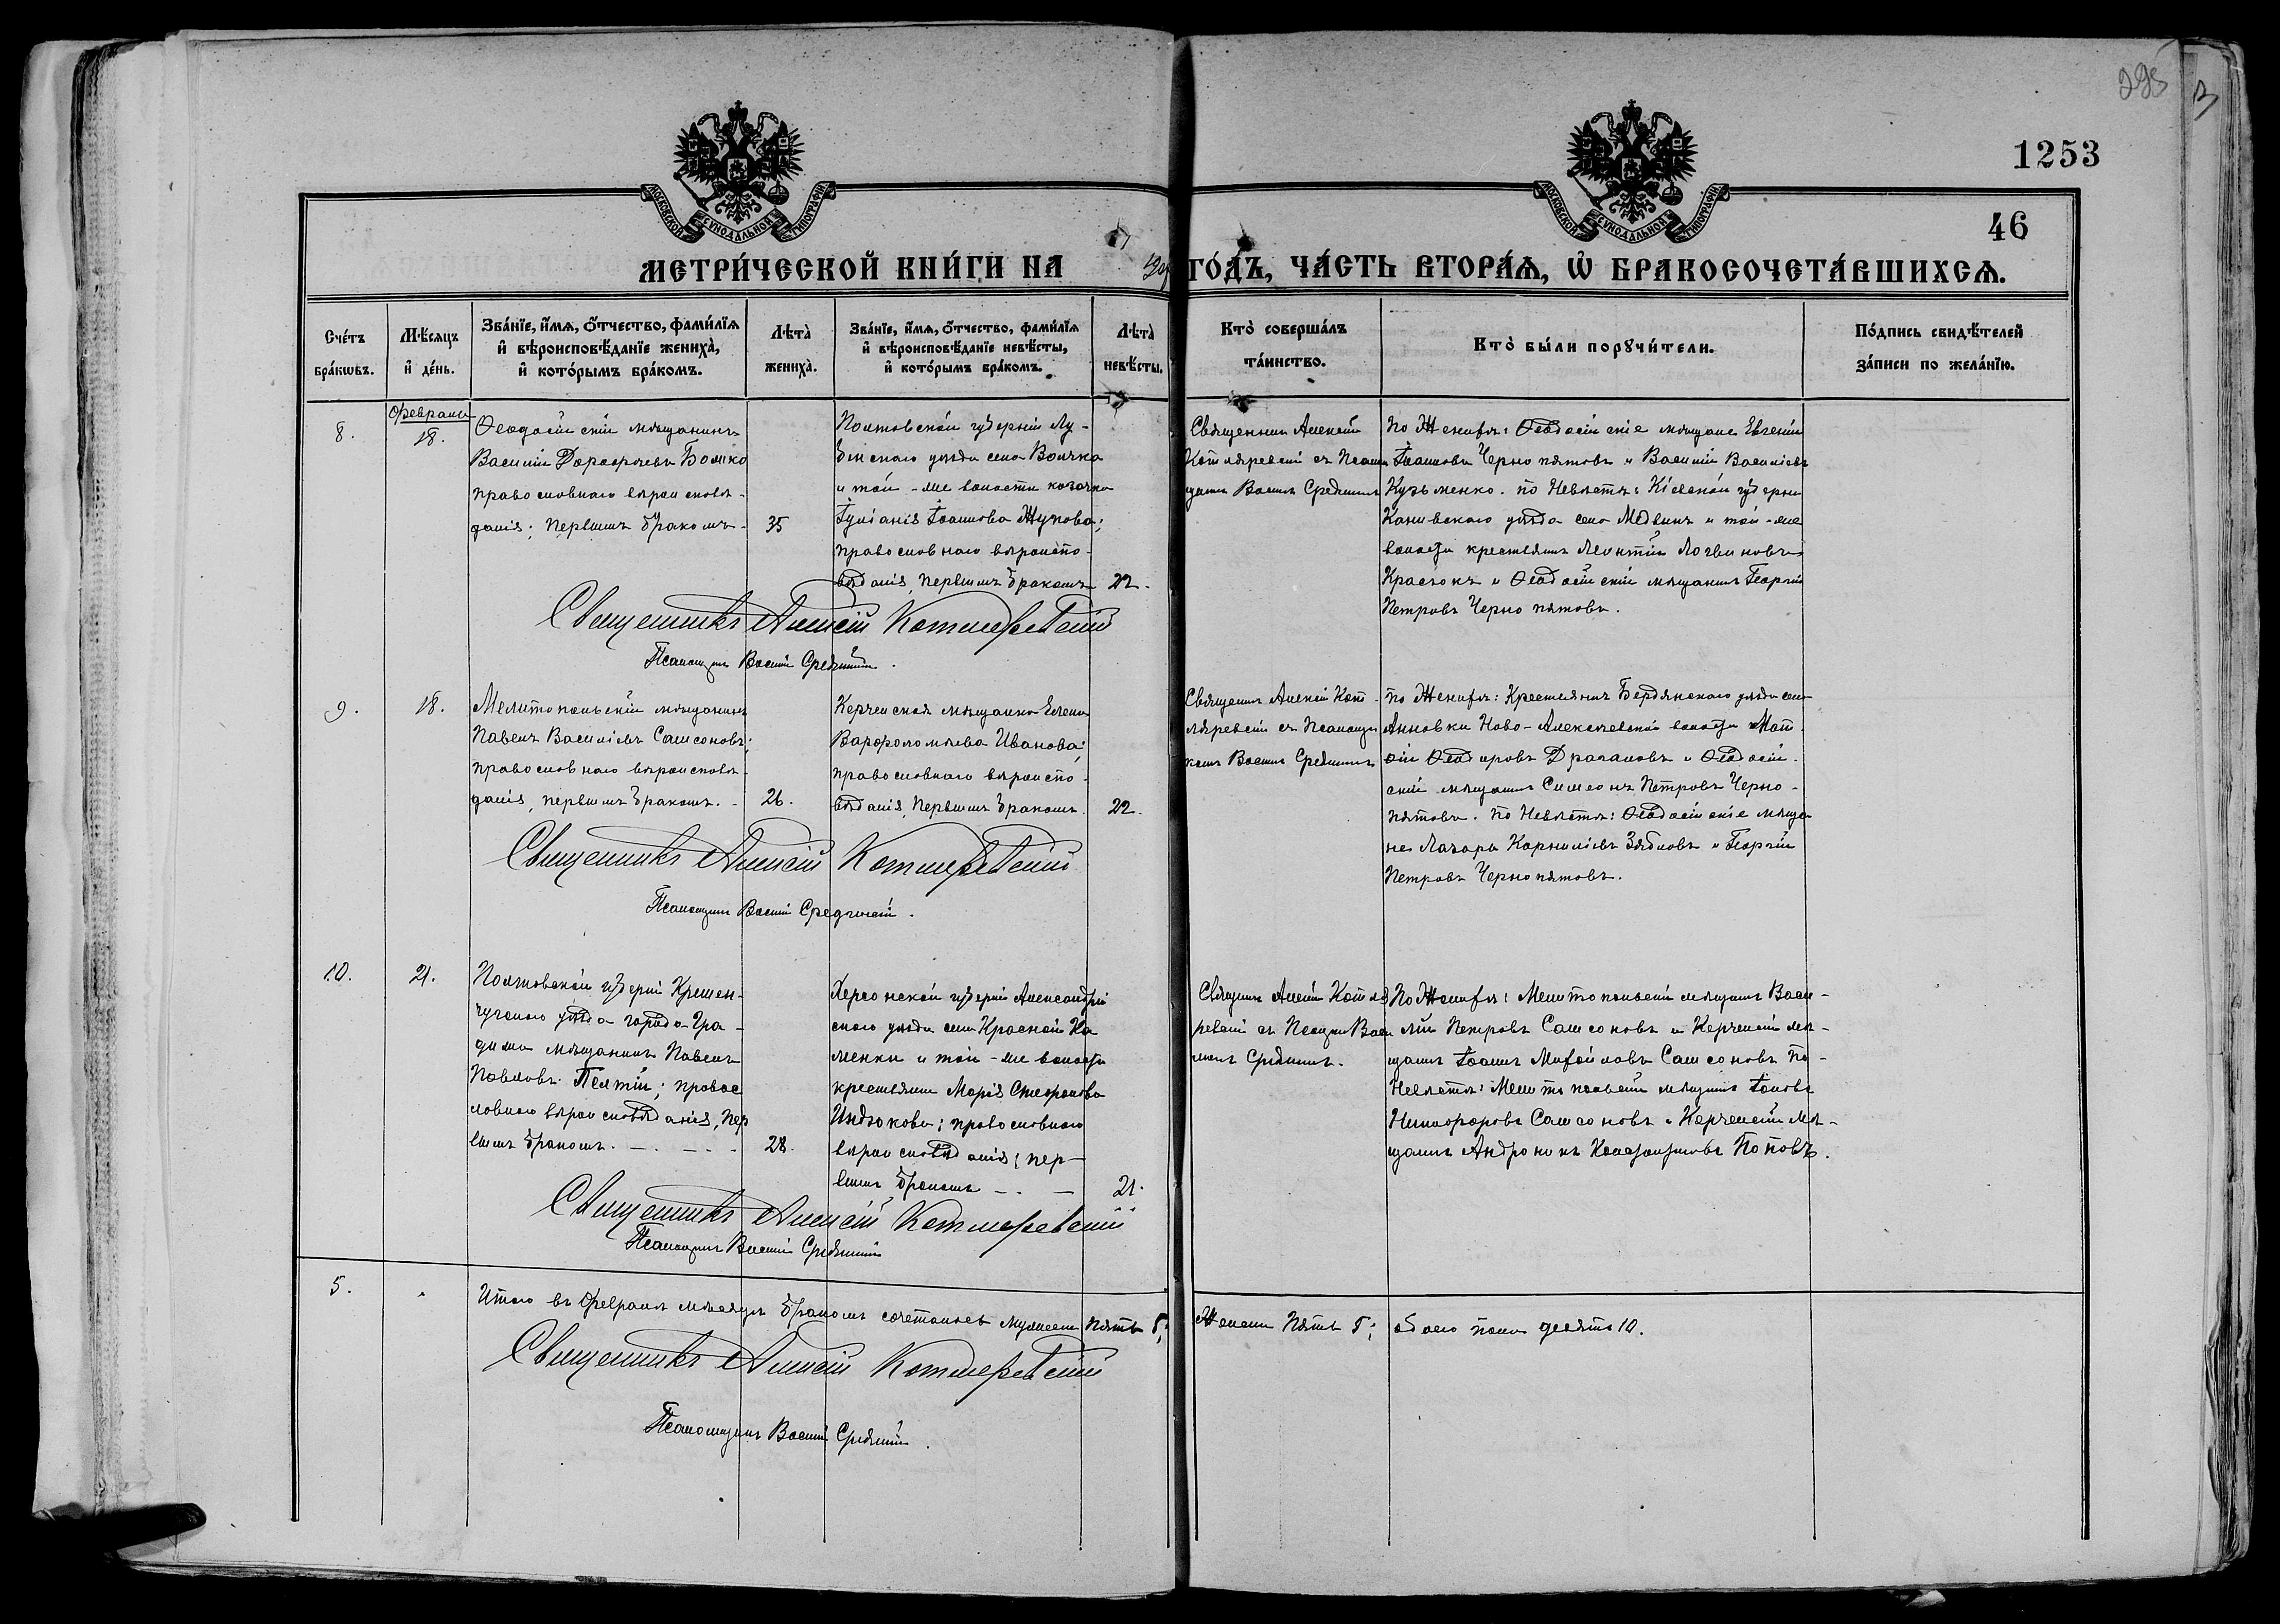 295
1253
46
МОСКОВСКОЙ СѴНОДАЛЬНОЙ ТИПОГРАФІИ
МОСКОВСКОЙ СѴНОДАЛЬНОЙ ТИПОГРАФІИ
МЕТРИ́ЧЕСКОЙ КНИ́ГИ НА ГО́ДЪ, ЧА́СТЬ ВТОРА́Ѧ, Ѽ БРАКОСОЧЕТА́ВШИХСѦ.
Сче́тъ бра́кѡвъ.
Мѣ́сѧцъ и҆ де́нь.
Зва́нїе, и҆́мѧ, о҆́тчество, фами́лїѧ
и҆ вѣроисповѣ́данїе жениха̀,
и҆ кото́рымъ бра́комъ.
Лѣта̀ жениха̀.
Зва́нїе, и҆́мѧ, о҆́тчество, фами́лїѧ
и҆ вѣроисповѣ́данїе невѣ́сты,
и҆ кото́рымъ бра́комъ.
Лѣта̀ невѣ́сты.
Кто̀ соверша́лъ та́инство.
Кто̀ бы́ли порꙋчи́тели.
По́дпись свидѣ́телей за́писи по жела́нїю.
8.
Февраля
18.
Ѳеодосійскій мѣщанинъ
Василій Дороѳеевъ Бойко
православнаго вѣроисповѣ-
данія; первымъ бракомъ
35
Полтавской губерніи Лу-
бенскаго уѣзда села Волчка
и той-же волости козачка
Іуліанія Іоаннова Жукова;
православнаго вѣроиспо-
вѣданія, первымъ бракомъ
22.
Священник Алексій
Котляревскій съ Псалом
щикомъ Василіемъ Срединскимъ
По Женихѣ: Ѳеодосійскіе мѣщане Евгеній
Іоанновъ Чернопятовъ и Василій Василіевъ
Кузьменко. по Невѣстѣ: Кіевской губерніи
Каневскаго уѣзда села Медвинъ и той-же
волости крестьянинъ Леонтій Логвиновъ
и Ѳеодосійскій мѣщанинъ Георгій
Петровъ Чернопятовъ.
Священникъ Алексій Котляревскій
Псаломщикъ Василій Срединскій.
9.
18.
Мелитопольскій мѣщанинъ
Павелъ Василіевъ Самсоновъ;
православнаго вѣроисповѣ-
данія, первымъ бракомъ.
26.
Керченская мѣщанка Елена
Варфоломѣева Иванова;
православнаго вѣроиспо-
вѣданія, первымъ бракомъ.
22.
Священникъ Алексій Кот-
ляревскій съ Псаломщи
комъ Василіемъ Срединскимъ
По Женихѣ: Крестьянинъ Бердянскаго уѣзда села
Анновки Ново-Алексѣевской волости Мат-
ѳій Ѳеодоровъ Драгановъ и Ѳеодосій-
скій мѣщанинъ Симеонъ Петровъ Черно-
пятовъ. По Невѣстѣ: Ѳеодосійскіе мѣща-
не Лазарь Корниліевъ Зябловъ и Георгій
Петровъ Чернопятовъ.
Священникъ Алексій Котляревскій
Псаломщикъ Василій Срединскій.
10.
21.
Полтавской губерніи Кремен-
чугскаго уѣзда города Гра-
дижа мѣщанинъ Павелъ
Павловъ; правос
лавнаго вѣроисповѣданія, пер
вымъ бракомъ.
28.
Херсонской губерніи Александрій
скаго уѣзда села Красной Ка
менки и той-же волости
крестьянка Марія Стефанова
Индюкова; православнаго
вѣроисповѣданія; пер-
вымъ бракомъ
21.
Священникъ Алексій Котля
ревскій съ Псаломщикомъ Васи
ліемъ Срединскимъ.
По Женихѣ: Мелитопольскій мѣщанинъ Васи-
лій Петровъ Самсоновъ и Керченскій мѣ-
щанинъ Іоаннъ Михайловъ Самсоновъ По-
Невѣстѣ: Мелитопольскій мѣщанинъ
Никифоровъ Самсоновъ и Керченскій мѣ-
щанинъ Андроникъ Константиновъ Поповъ.
Священникъ Алексій Котляревскій
Псаломщикъ Василій Срединскій
5.
Итого въ Февралѣ мѣсяцѣ бракомъ сочеталось мужеска Пять 5; Женска Пять 5; обоего пола десять 10.
Священникъ Алексій Котляревскій
Псаломщикъ Василій Срединскій.